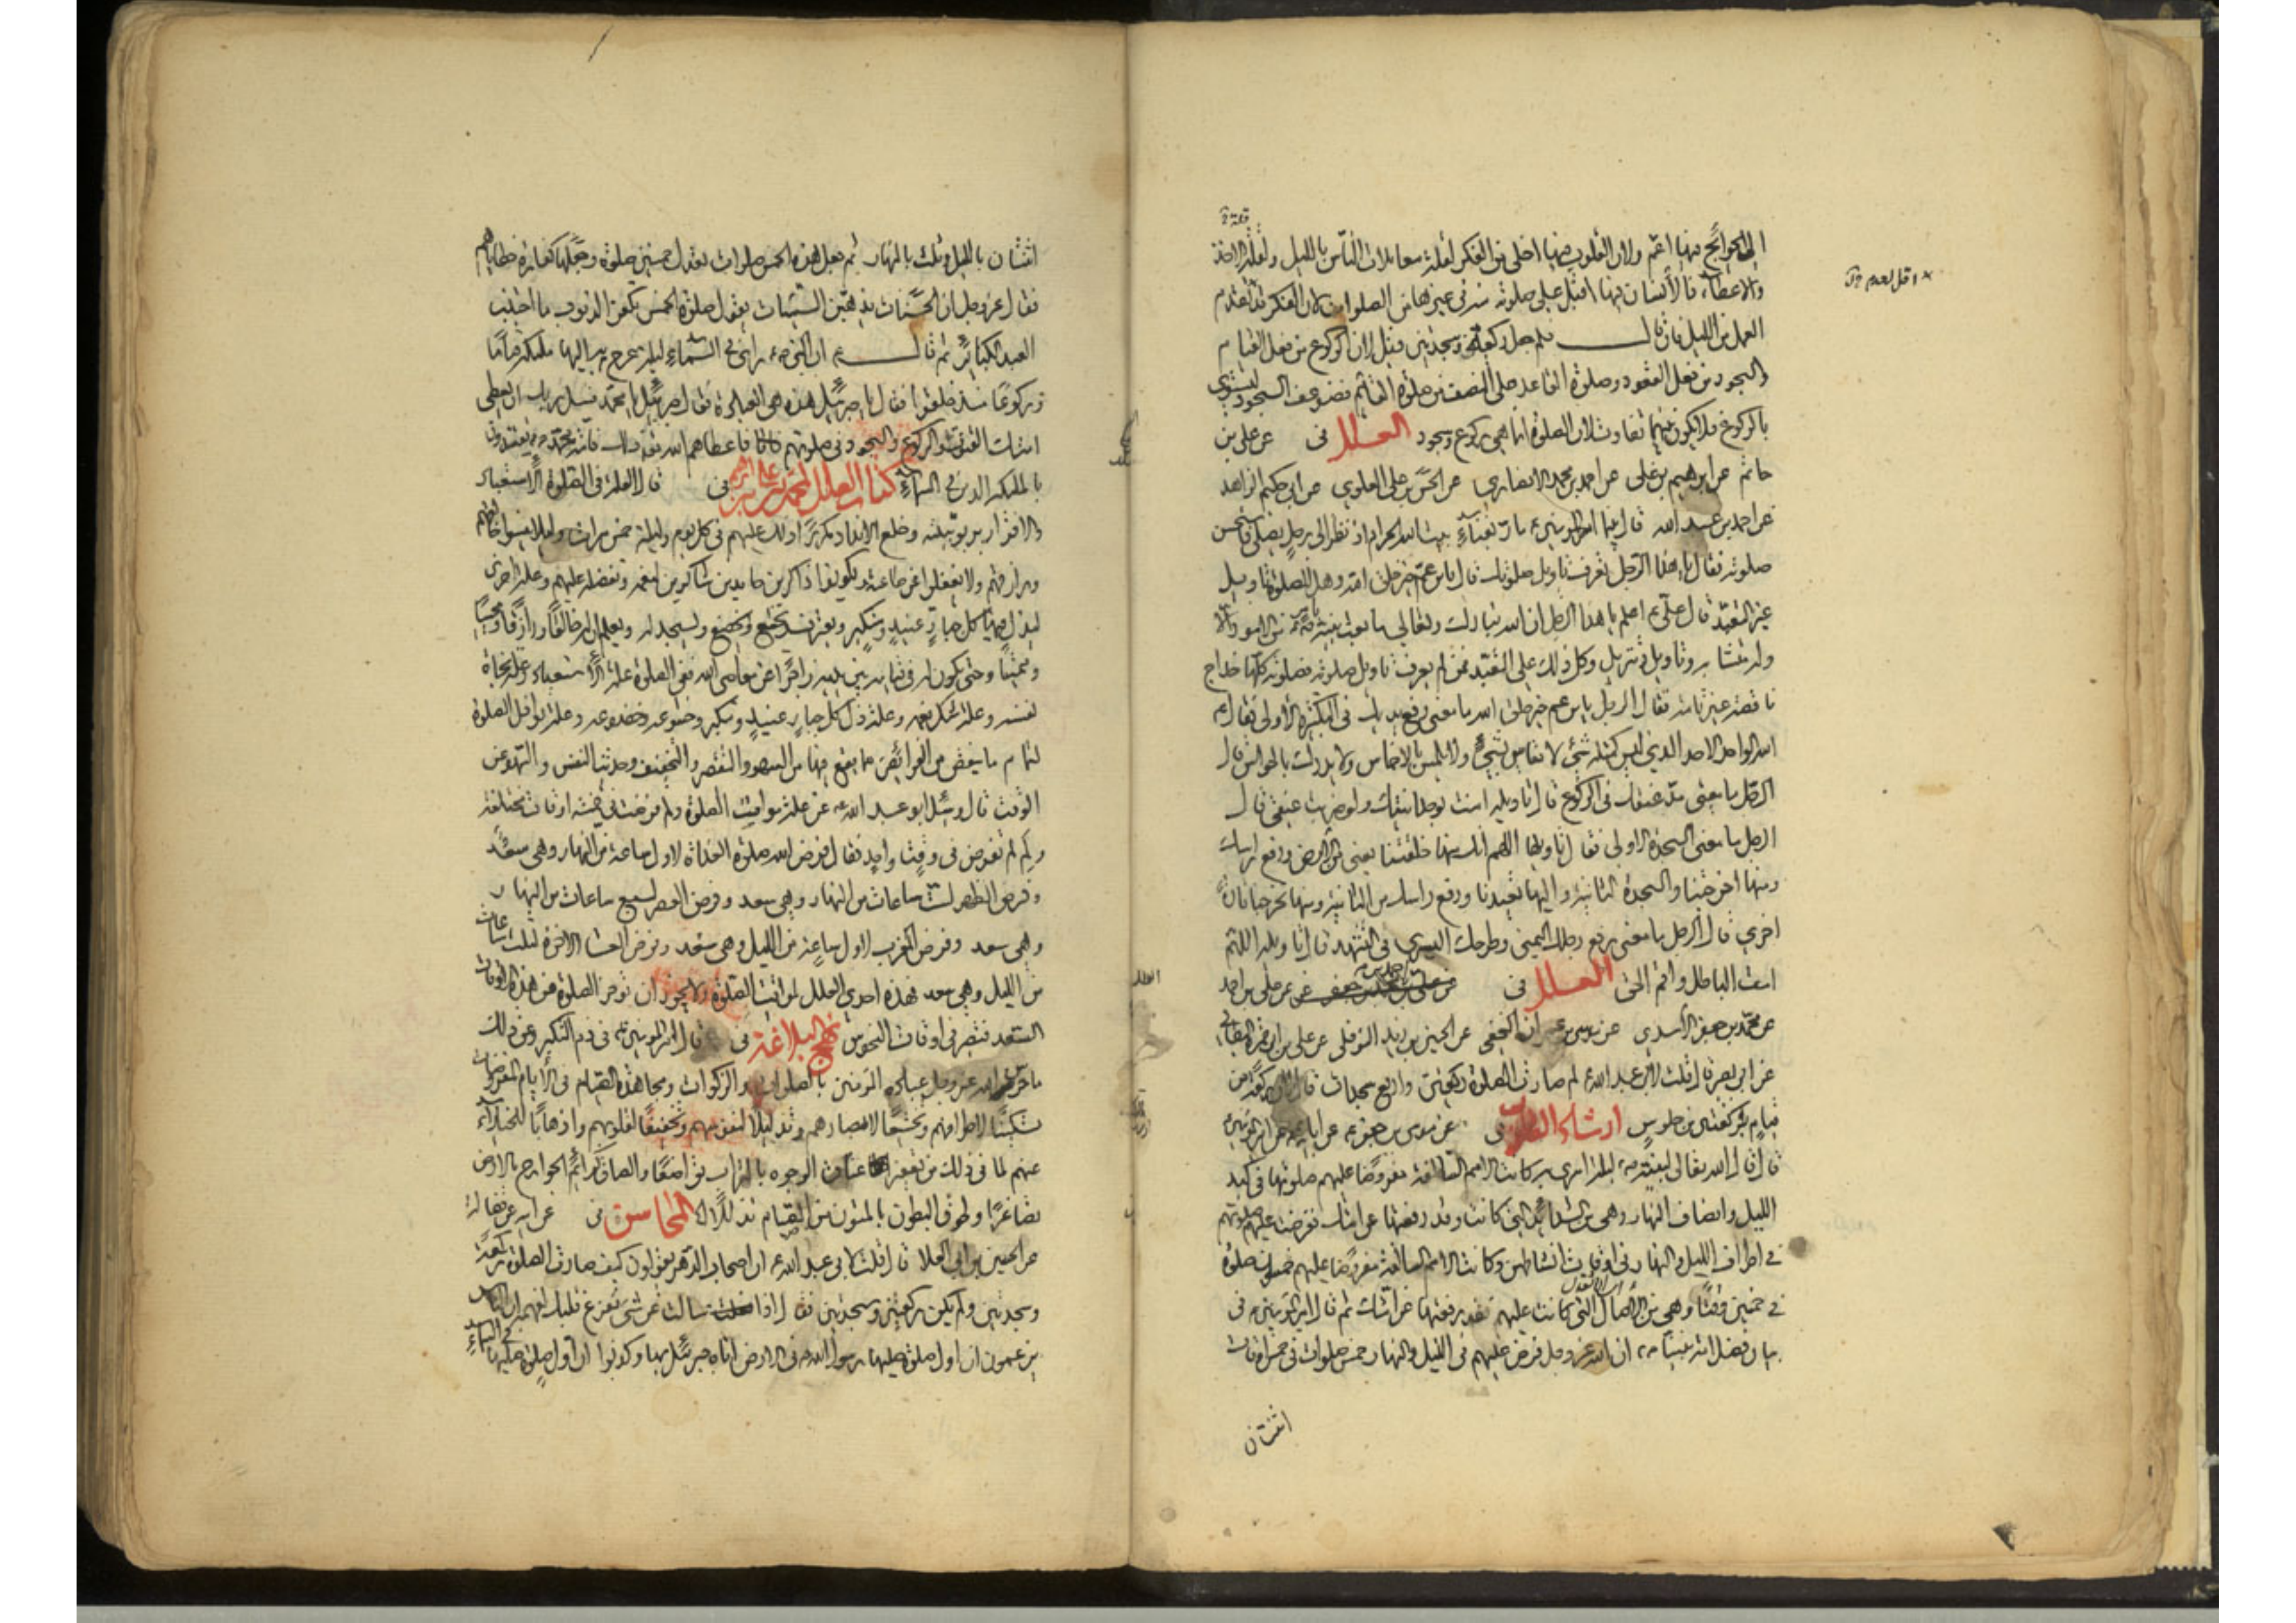 الحوائج فيها اعم ولان القلوب فيها اخلى من الفكر لقلة معاملات الناس بالليل ولقلة الاخذ
والاعطاء فالانسان فيها اقبل على صلوته منه في غيرها من الصلوات لان الفكر قد تقدم
العمل من الليل فان قال فلم جعل ركعة وسجدتين قيل لان الركوع من فعل القيام
والسجود من فعل القعود وصلوة القاعد على النصف من صلوة القائم فضوعف السجود ليستوي
بالركوع فلا يكون بينهما تفاوت لان الصلوة انما هي ركوع وسجود العلل في عن علي بن
حاتم عن ابراهيم بن علي عن احمد بن محمد الانصاري عن الحسن بن علي العلوي عن ابي حكيم الزاهد
عن احمد بن عبد الله قال بينما امير المؤمنين ع مار بفناء بيت الله الحرام اذ نظر الى رجل يصلي فاستحسن
صلوته فقال يا هذا الرجل تعرف تاويل صلوتك قال يابن عم خير خلق الله وهل للصلوة تاويل
غير التعبد قال علي ع اعلم يا هذا الرجل ان الله تبارك وتعالى ما بعث نبيه ص بامر من الامور الا
وله متشابه وتاويل وتنزيل وكل ذلك على التعبد فمن لم يعرف تاويل صلوته فصلوته كلها خداج
ناقصة غير تامة فقال الرجل يابن عم خير خلق الله ما معنى رفع يديك في التكبيرة الاولى فقال ع
الله الواحد الاحد الذي ليس كمثله شيء لا يقاس بشيء ولا يلمس بالاخماس ولا يدرك بالحواس قال
الرجل ما معنى مد عنقك في الركوع قال تاويله امنت بوحدانيتك ولو ضربت عنقي قال
الرجل ما معنى السجدة الاولى فقال تاويلها اللهم انك منها خلقتنا يعني من الارض ورفع راسك
ومنها اخرجتنا والسجدة الثانية واليها تعيدنا ورفع راسك من الثانية ومنها تخرجنا تارة
اخرى قال الرجل ما معنى رفع رجلك اليمنى وطرحك اليسرى في التشهد قال تاويله اللهم
امت الباطل واقم الحق العلل في عن علي بن احمد
عن محمد بن جعفر الاسدي عن موسى بن عمران النخعي عن الحسين بن يزيد النوفلي عن علي بن ابي حمزة البطائني
عن ابي بصير قال قلت لابي عبد الله ع لم صارت الصلوة ركعتين واربع سجدات قال لان ركعة من
قيام بركعتين من جلوس ارشاد القلوب عن موسى بن جعفر ع عن ابائه عن امير المؤمنين ع
قال قال الله تعالى لنبيه ص ليلة اسري به كانت الامم السالفة مفروضا عليهم صلوتها في كبد
الليل وانصاف النهار وهي من الشدائد التي كانت وقد رفعتها عن امتك وفرضت عليهم صلوتهم
في اطراف الليل والنهار في اوقات نشاطهم وكانت الامم السالفة مفروضا عليهم خمسون صلوة
في خمسين وقتا وهي من الاصال التي كانت عليهم وقد رفعتها عن امتك ثم قال امير المؤمنين ع في
بيان فضل امة نبينا ص ان الله عز وجل فرض عليهم في الليل والنهار خمس صلوات في خمسة اوقات
اثنتان
اثنتان بالليل وثلث بالنهار ثم جعل هذه الخمس صلوات تعدل خمسين صلوة وجعلها كفارة خطاياهم
فقال عز وجل ان الحسنات يذهبن السيئات يقول صلوة الخمس تكفر الذنوب ما اجتنب
العبد الكبائر ثم قال ع ان النبي ص راى في السماء ليلة عرج به اليها ملئكة قياما
وركوعا منذ خلقوا فقال يا جبرئيل هذه هي العبادة فقال جبرئيل يا محمد فسل ربك ان يعطي
امتك القنوت والركوع والسجود في صلوتهم فاعطاهم الله تعالى ذلك فامة محمد ص يقتدون
بالملئكة الذين في السماء كتاب العلل لمحمد بن علي بن ابراهيم في قال العلة في الصلوة الاستعباد
والاقرار بربوبيته وخلع الانداد مكررا ذلك عليهم في كل يوم وليلة خمس مرات ولئلا ينسوا خالقهم
ورازقهم ولا يغفلوا عن طاعته وليكونوا ذاكرين حامدين شاكرين لنعمه وتفضله عليهم وعلة اخرى
ليذل فيها كل جبار عنيد ومتكبر ويعترف ويخشع ويخضع ويسجد له ويعلم ان له خالقا ورازقا ومحييا
ومميتا وحتى يكون له في قيامه بين يديه زاجرا عن معاصي الله ففي الصلوة علة الاستعباد وعلة نجاة
نفسه وعلة شكر نعمه وعلة ذل كل جبار عنيد ومتكبر وخشوعه وخضوعه وعلة نوافل الصلوة
لتمام ما ينقص من الفرائض مما يقع فيها من السهو والتقصير والتخفيف وحديث النفس والسهو عن
الوقت قال وسئل ابو عبد الله ع عن علة مواقيت الصلوة ولم فرضت في خمسة اوقات مختلفة
ولم لم تفرض في وقت واحد فقال فرض الله صلوة الغداة لاول ساعة من النهار وهي سعد
وفرض الظهر لست ساعات من النهار وهي سعد وفرض العصر لسبع ساعات من النهار
وهي سعد وفرض المغرب لاول ساعة من الليل وهي سعد وفرض العشاء الاخرة لثلث ساعات
من الليل وهي سعد فهذه احدى العلل لمواقيت الصلوة ولا يجوز ان تؤخر الصلوة من هذه الاوقات
السعد فتصير في اوقات النحوس نهج البلاغة في قال امير المؤمنين ع في ذم التكبر وعن ذلك
ما حرس الله عز وجل عباده المؤمنين بالصلوات والزكوات ومجاهدة الصيام في الايام المفروضات
تسكينا لاطرافهم وتخشيعا لابصارهم وتذليلا لنفوسهم وتخفيضا لقلوبهم واذهابا للخيلاء
عنهم لما في ذلك من تعفير عتاق الوجوه بالتراب تواضعا والصاق كرائم الجوارح بالارض
تصاغرا ولحوق البطون بالمتون من الصيام تذللا المحاسن في عن ابيه عن فضالة
عن الحسين بن ابي العلا قال قلت لابي عبد الله ع ان اصحاب الدهر يقولون كيف صارت الصلوة ركعة
وسجدتين ولم يكن ركعتين وسجدتين فقال اذا سالت عن شيء ففرغ قلبك لفهمه ان الناس
يزعمون ان اول صلوة صليها رسول الله ص في الارض اتاه جبرئيل بها وكذبوا ان اول صلوة صليها في السماء